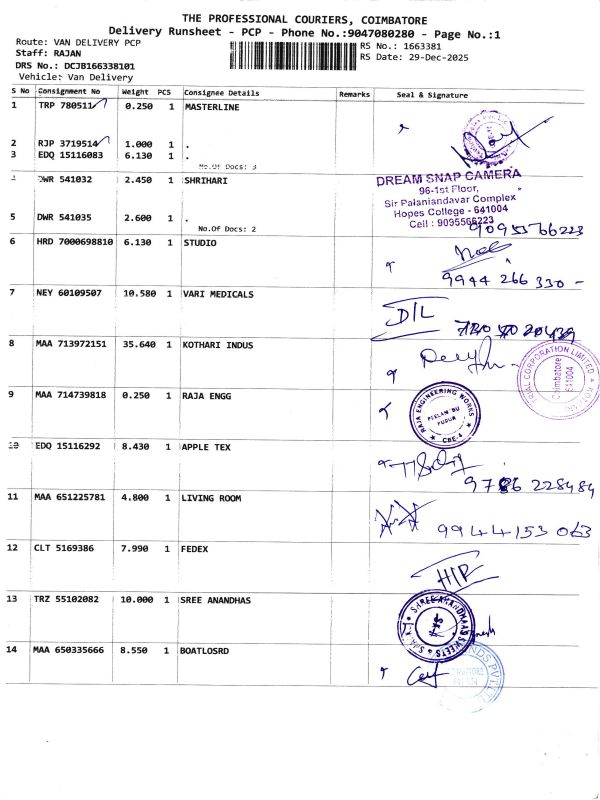 THE PROFESSIONAL COURIERS, COIMBATORE
Delivery Runsheet - PCP - Phone No.:9047080280 - Page No.:1
Route: VAN DELIVERY PCP
RS No.: 1663381
Staff: RAJAN
RS Date: 29-Dec-2025
DRS No.: DCJB166338101
Vehicle: Van Delivery
S No Consignment No Weight PCS Consignee Details Remarks Seal & Signature
1 TRP 780511 0.250 1 MASTERLINE
2 RJP 3719514 1.000 1 .
3 EDQ 15116083 6.130 1 .
No.Of Docs: 3
4 DWR 541032 2.450 1 SHRIHARI
DREAM SNAP CAMERA
96-1st Floor,
Sir Palaniandavar Complex
Hopes College - 641004
Cell : 9095566223
5 DWR 541035 2.600 1 .
No.Of Docs: 2
9095566223
6 HRD 7000698810 6.130 1 STUDIO
9944 266 330 -
7 NEY 60109507 10.580 1 VARI MEDICALS
D/L
8 MAA 713972151 35.640 1 KOTHARI INDUS
TRIAL CORPORATION LIMITED
Coimbatore
641004
9 MAA 714739818 0.250 1 RAJA ENGG
RAJA ENGINEERING WORKS
PEELAMEDU
PUDUR
CBE-4
10 EDQ 15116292 8.430 1 APPLE TEX
9786 228484
11 MAA 651225781 4.800 1 LIVING ROOM
9944153 063
12 CLT 5169386 7.990 1 FEDEX
H/P
13 TRZ 55102082 10.000 1 SREE ANANDHAS
14 MAA 650335666 8.550 1 BOATLOSRD